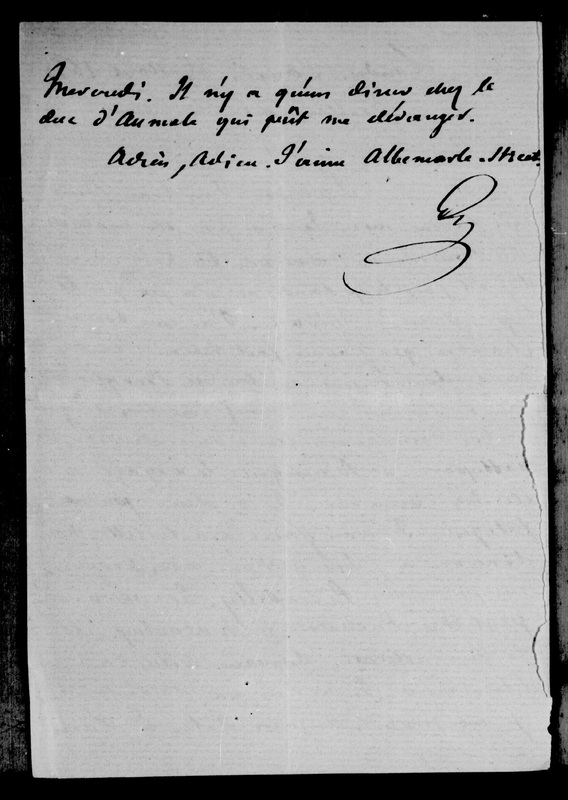 Mercredi. Il n'y a qu'un diner chez le
duc d'Aumale qui pût me déranger.
Adieu, Adieu. J'aime Albemarle-Street.